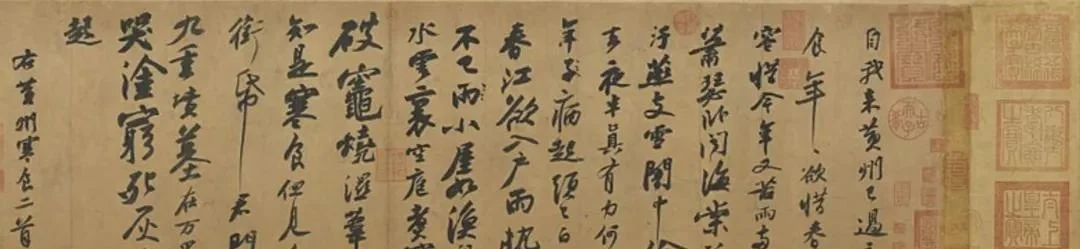 自我来黄州已過三
食年〻欲惜春
容惜今年又苦雨兩
蕭瑟卧聞海棠
汙燕支雪闇中偷
去夜半真有力何
年子病起頭已白
春江欲入户雨勢
不已雨小屋如漁
水雲裏空庖煮寒
破竈燒濕葦
知是寒食但見烏
銜帋君門
九重墳墓在万里
哭塗窮死灰
起
右黄州寒食二首